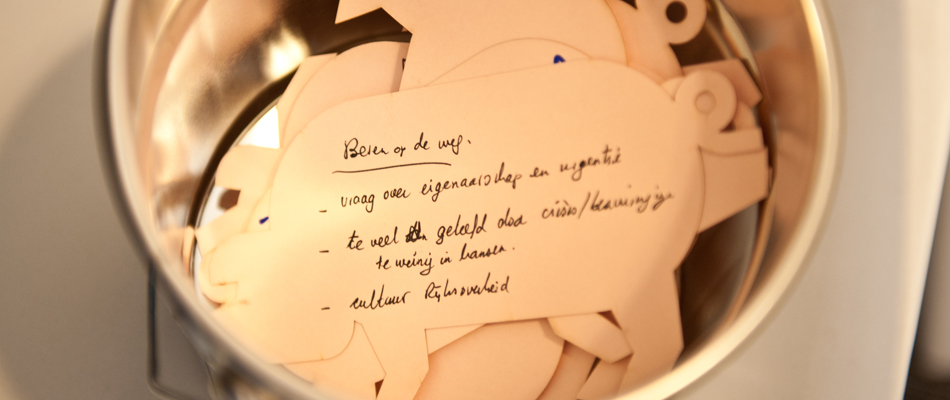 Beren op de weg.
- vraag over eigenaarschap en urgentie
- te veel geleefd door crisis/
te weinig in kansen.
- cultuur Rijksoverheid